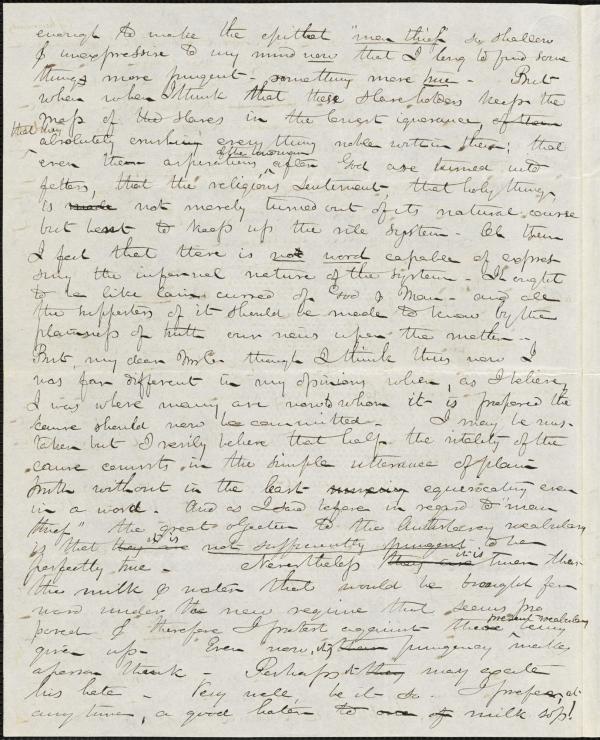 enough to make the epithet "man thief" so shallow
& inexpressive to my mind now that I long to find some
thing more pungent - something more true - But
when when I think that these slaveholders keeps the
mass of the slaves in the lowest ignorance, of them
that they
absolutely crushing every thing noble within them; that
of the women
even their aspirations after God are turned into
fetters, that the religious sentiment - that holy thing,
is made not merely turned out of its natural course
but bent to keep up the vile system - Oh then
I feel that there is not word capable of expres
sing the infernal nature of the system - It ought
to be like Cain cursed of God & Man - and all
the supporters of it should be made to know by the
plainness of truth our views upon the matter -
But, my dear Mrs C - though I think this now I
was far different in my opinions when, as I believe,
I was where many are now to whom it is proposed the
cause should now be committed - I may be mis-
taken but I verily believe that half the vitality of the
cause consists in the simple utterance of plain
truth without in the least equivocating even
in a word - And as I said before in regard to "man
thief" the great objection to the Antislavery vocabulary
it is
is that they are not sufficiently pungent to be
perfectly true - Nevertheless they are truer than
it is
the milk & water that would be brought for
ward under the new regime that seems pro
present vocabulary
posed & therefore I protest against these being
given up - Even now, its pungency makes
a person think. Perhaps it they may excite
his hate - Very well be it so - I prefer, at
any time, a good hater to one of milk sops!